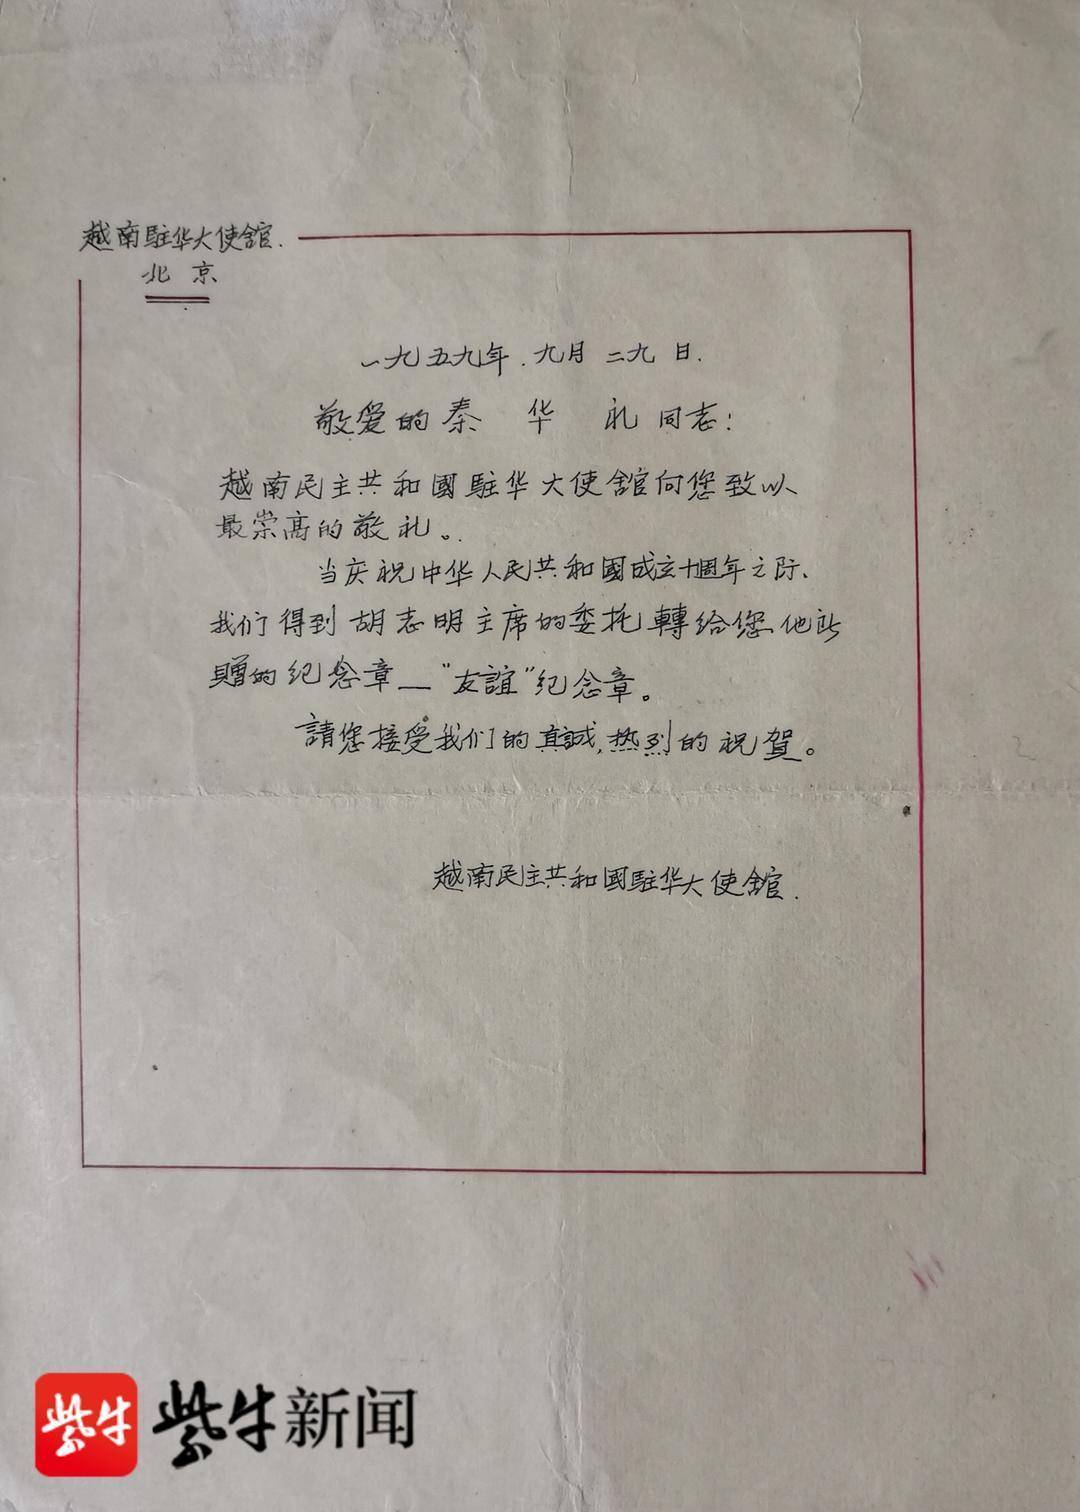 越南駐华大使舘.
北京
一九五九年.九月二九日.
敬爱的秦华礼同志:
越南民主共和國駐华大使舘向您致以
最崇高的敬礼。
当庆祝中华人民共和國成立十週年之际、
我们得到胡志明主席的委托轉给您他所
贈的纪念章—"友誼"纪念章。
請您接受我们的真誠,热烈的祝賀。
越南民主共和國駐华大使舘.
紫牛 紫牛新闻